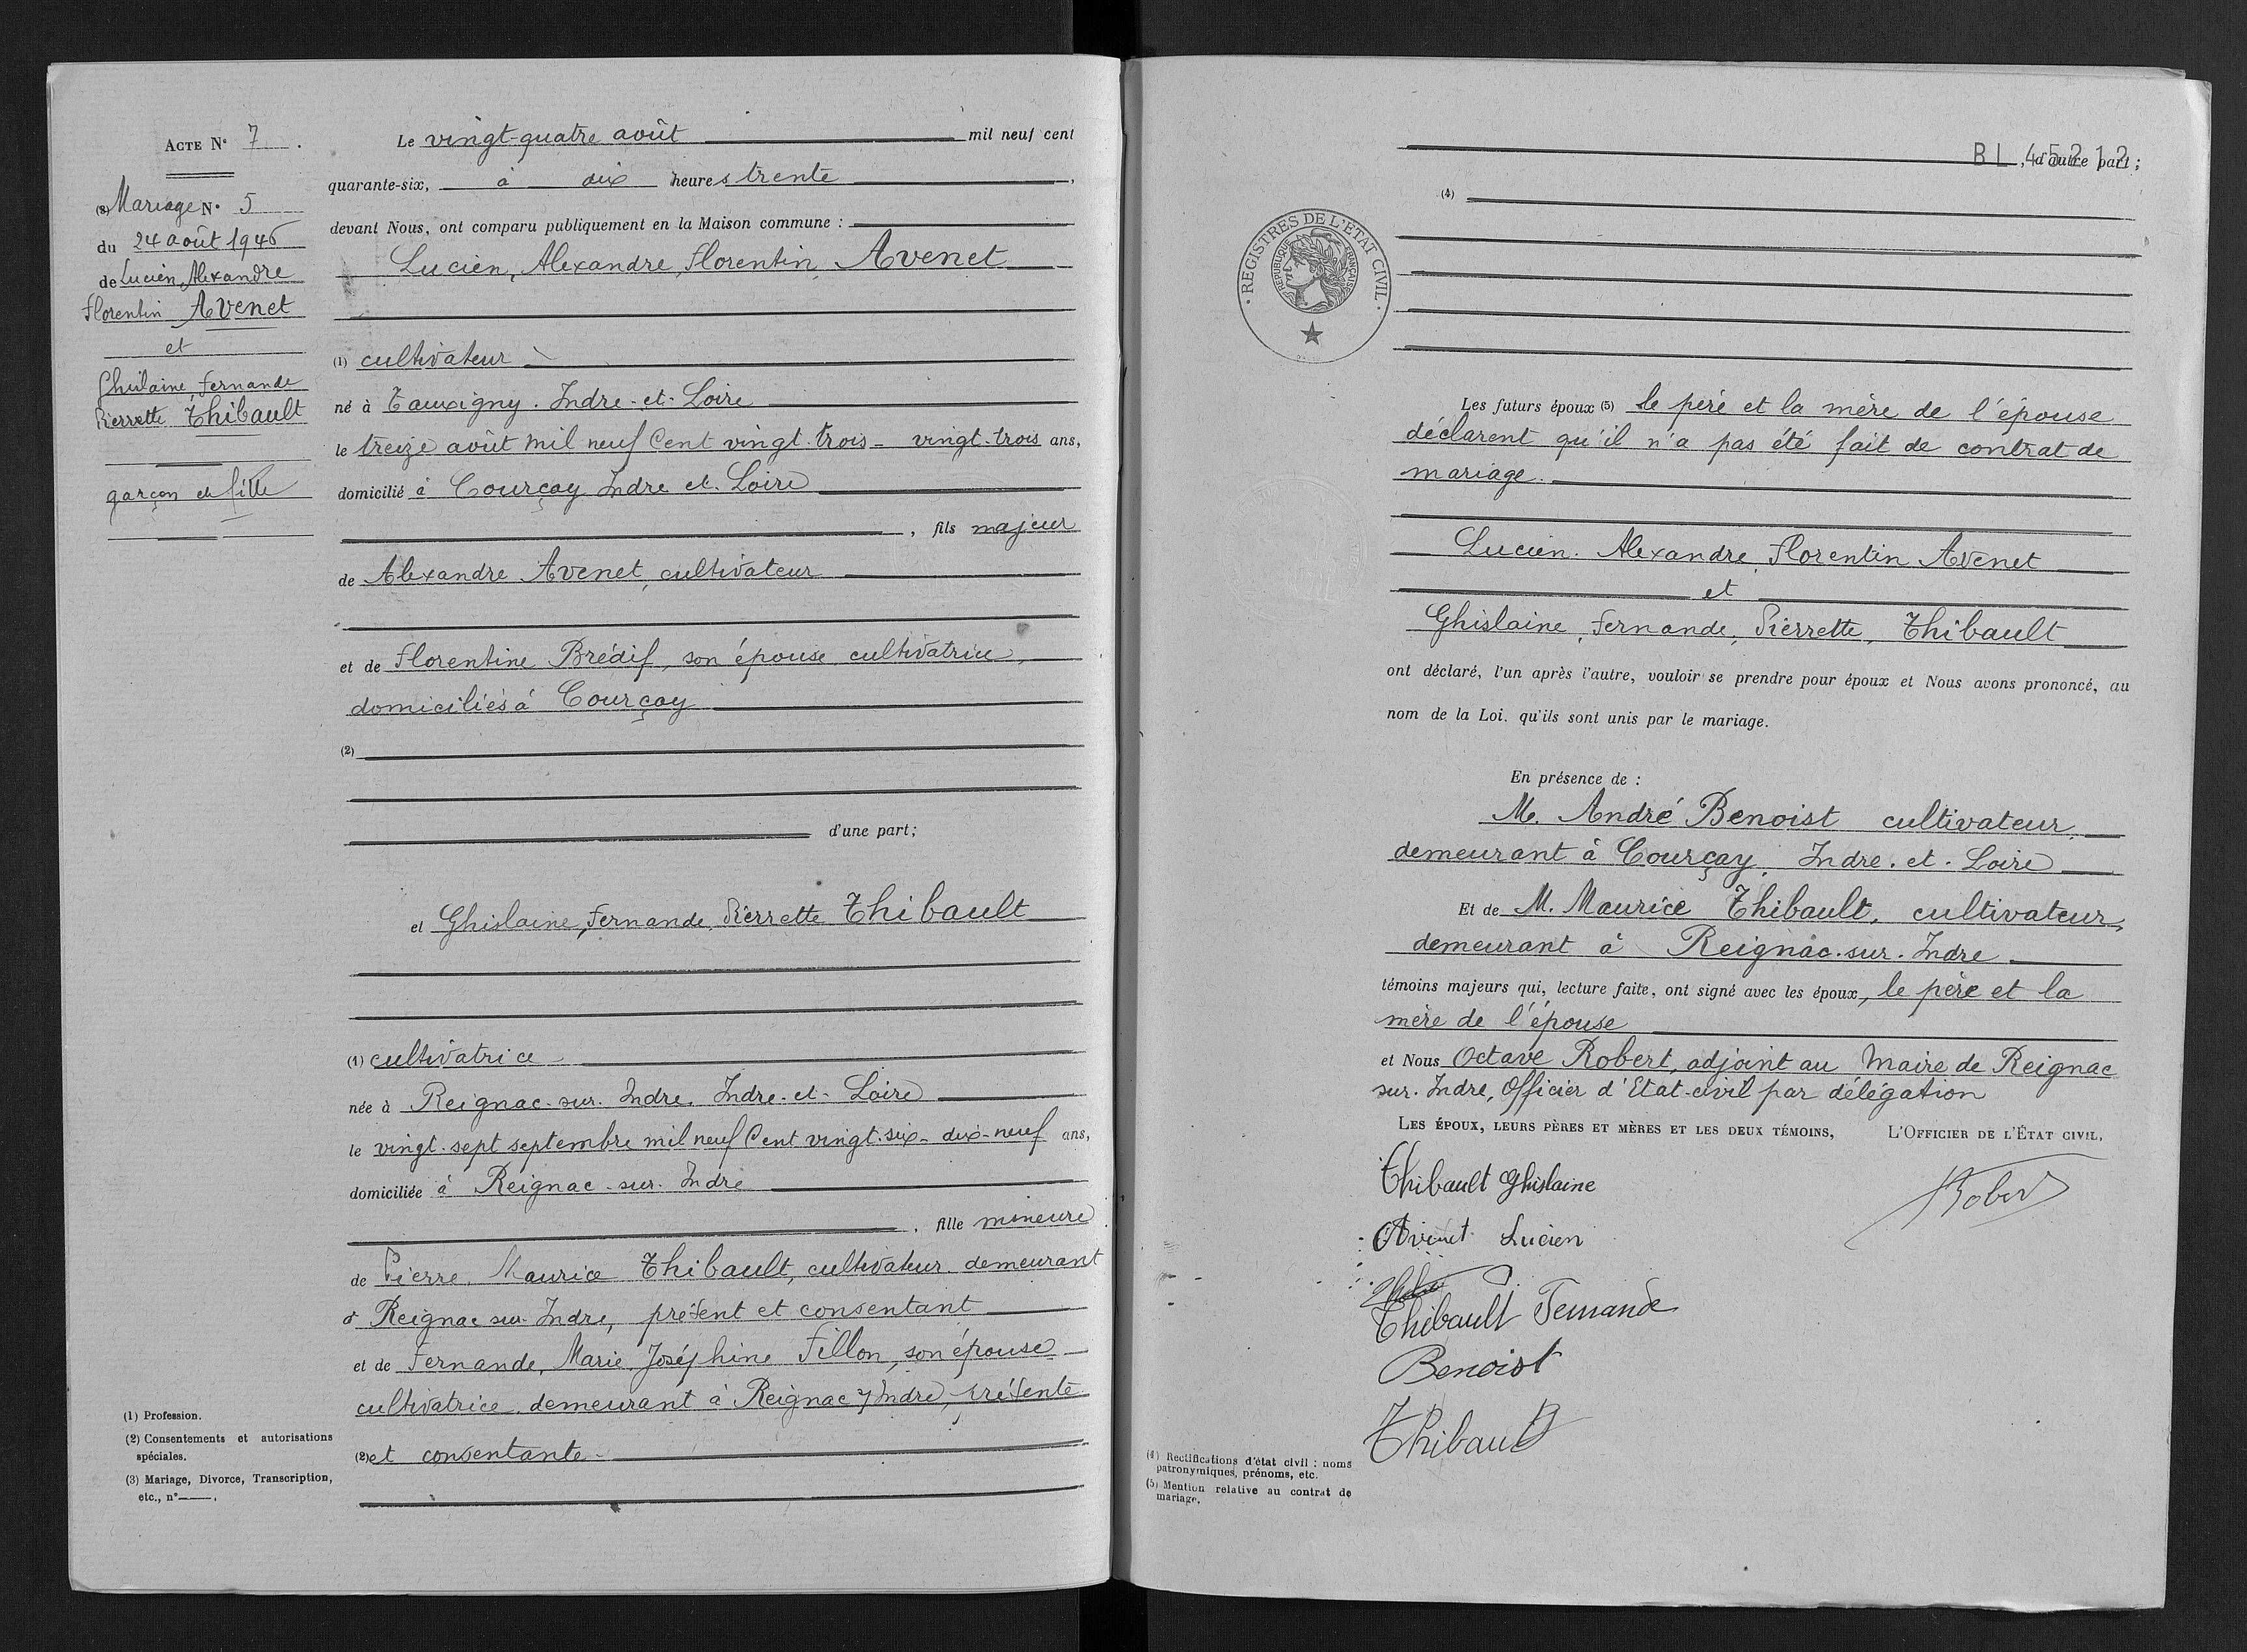 ACTE N° 7.
(3) Mariage N° 5
du 24 août 1946
de Lucien, Alexandre
Florentin Avenet
et
Ghislaine, Fernande
Pierrette Thibault
garçon et fille
(1) Profession.
(2) Consentements et autorisations
spéciales.
(3) Mariage, Divorce, Transcription,
etc., n°——.
Le vingt-quatre août mil neuf cent
quarante-six, à dix heures trente,
devant Nous, ont comparu publiquement en la Maison commune :
Lucien, Alexandre, Florentin Avenet
(1) cultivateur
né à Tauxigny. Indre-et-Loire
le treize août mil neuf Cent vingt-trois - vingt-trois ans,
domicilié à Courçay Indre et Loire
, fils majeur
de Alexandre Avenet, cultivateur
et de Florentine Brédif, son épouse cultivatrice,
domiciliés à Courçay
(2)
d'une part;
et Ghislaine, Fernande, Pierrette Thibault
(1) cultivatrice
née à Reignac-sur-Indre, Indre-et-Loire
le vingt-sept septembre mil neuf Cent vingt-six - dix-neuf ans,
domiciliée à Reignac-sur-Indre
, fille mineure
de Pierre, Maurice Thibault, cultivateur demeurant
à Reignac sur Indre, présent et consentant
et de Fernande, Marie, Joséphine Fillon, son épouse
cultivatrice, demeurant à Reignac s/ Indre, présente
(2) et consentante
BL 45212
, d'autre part;
(4)
REGISTRES DE L'ÉTAT CIVIL
RÉPUBLIQUE FRANÇAISE
Les futurs époux (5) le père et la mère de l'épouse
déclarent qu'il n'a pas été fait de contrat de
mariage.
Lucien. Alexandre, Florentin Avenet
et
Ghislaine, Fernande, Pierrette, Thibault
ont déclaré, l'un après l'autre, vouloir se prendre pour époux et Nous avons prononcé, au
nom de la Loi, qu'ils sont unis par le mariage.
En présence de :
M. André Benoist cultivateur,
demeurant à Courçay, Indre-et-Loire
Et de M. Maurice Thibault, cultivateur,
demeurant à Reignac-sur-Indre
témoins majeurs qui, lecture faite, ont signé avec les époux, le père et la
mère de l'épouse
et Nous Octave Robert, adjoint au Maire de Reignac
sur-Indre, Officier d'Etat-civil par délégation
LES ÉPOUX, LEURS PÈRES ET MÈRES ET LES DEUX TÉMOINS,
L'OFFICIER DE L'ÉTAT CIVIL,
Thibault Ghislaine
Robert
Avenet Lucien
Thibault Fernande
Benoist
Thibault
(4) Rectifications d'état civil : noms
patronymiques, prénoms, etc.
(5) Mention relative au contrat de
mariage.